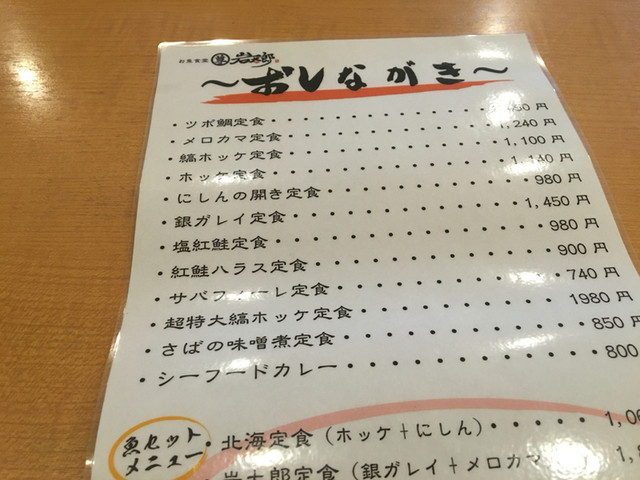 お魚食堂 岩十郎
〜おしながき〜
・ツボ鯛定食・・・・・・・・・・・・・・・
・メロカマ定食・・・・・・・・・・・・・・1,240円
・縞ホッケ定食・・・・・・・・・・・・・・1,100円
・ホッケ定食・・・・・・・・・・・・・・・1,140円
・にしんの開き定食・・・・・・・・・・・・980円
・銀ガレイ定食・・・・・・・・・・・・・・1,450円
・塩紅鮭定食・・・・・・・・・・・・・・・980円
・紅鮭ハラス定食・・・・・・・・・・・・・900円
・サバフィーレ定食・・・・・・・・・・・・740円
・超特大縞ホッケ定食・・・・・・・・・・・1980円
・さばの味噌煮定食・・・・・・・・・・・・850円
・シーフードカレー・・・・・・・・・・・・800
魚セットメニュー
・北海定食（ホッケ＋にしん）・・・・・
・岩十郎定食（銀ガレイ＋メロカマ